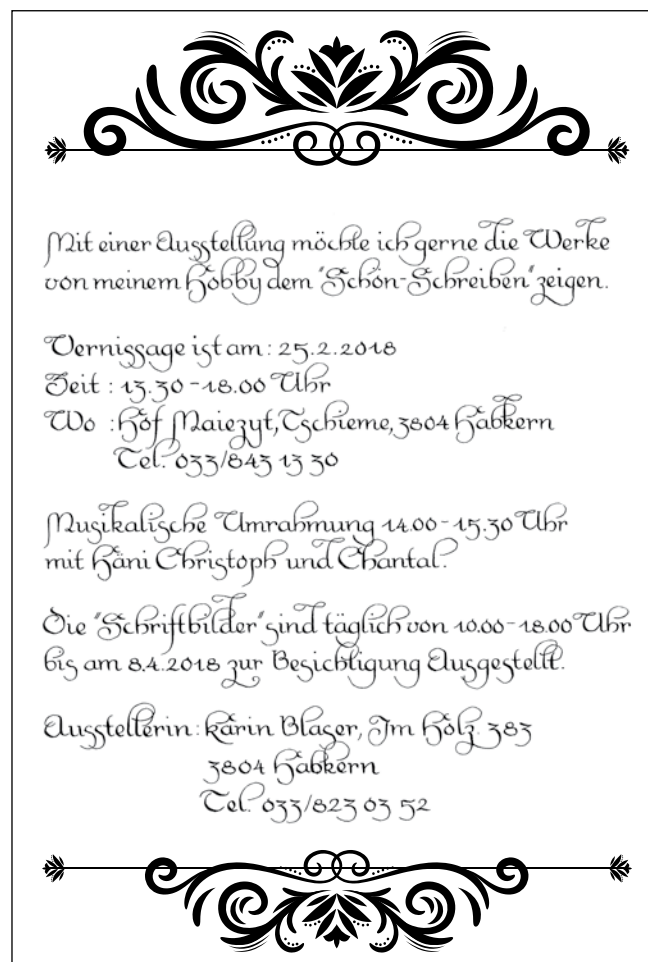 Mit einer Ausstellung möchte ich gerne die Werke
von meinem Hobby dem "Schön-Schreiben" zeigen.
Vernissage ist am : 25.2.2018
Zeit : 13.30 - 18.00 Uhr
Wo : Hof Maiezyt, Tschieme, 3804 Habkern
Tel. 033/843 13 30
Musikalische Umrahmung 14.00 - 15.30 Uhr
mit Häni Christoph und Chantal.
Die "Schriftbilder" sind täglich von 10.00 - 18.00 Uhr
bis am 8.4.2018 zur Besichtigung Ausgestellt.
Ausstellerin : Karin Blaser, Im Holz 383
3804 Habkern
Tel. 033/823 03 52